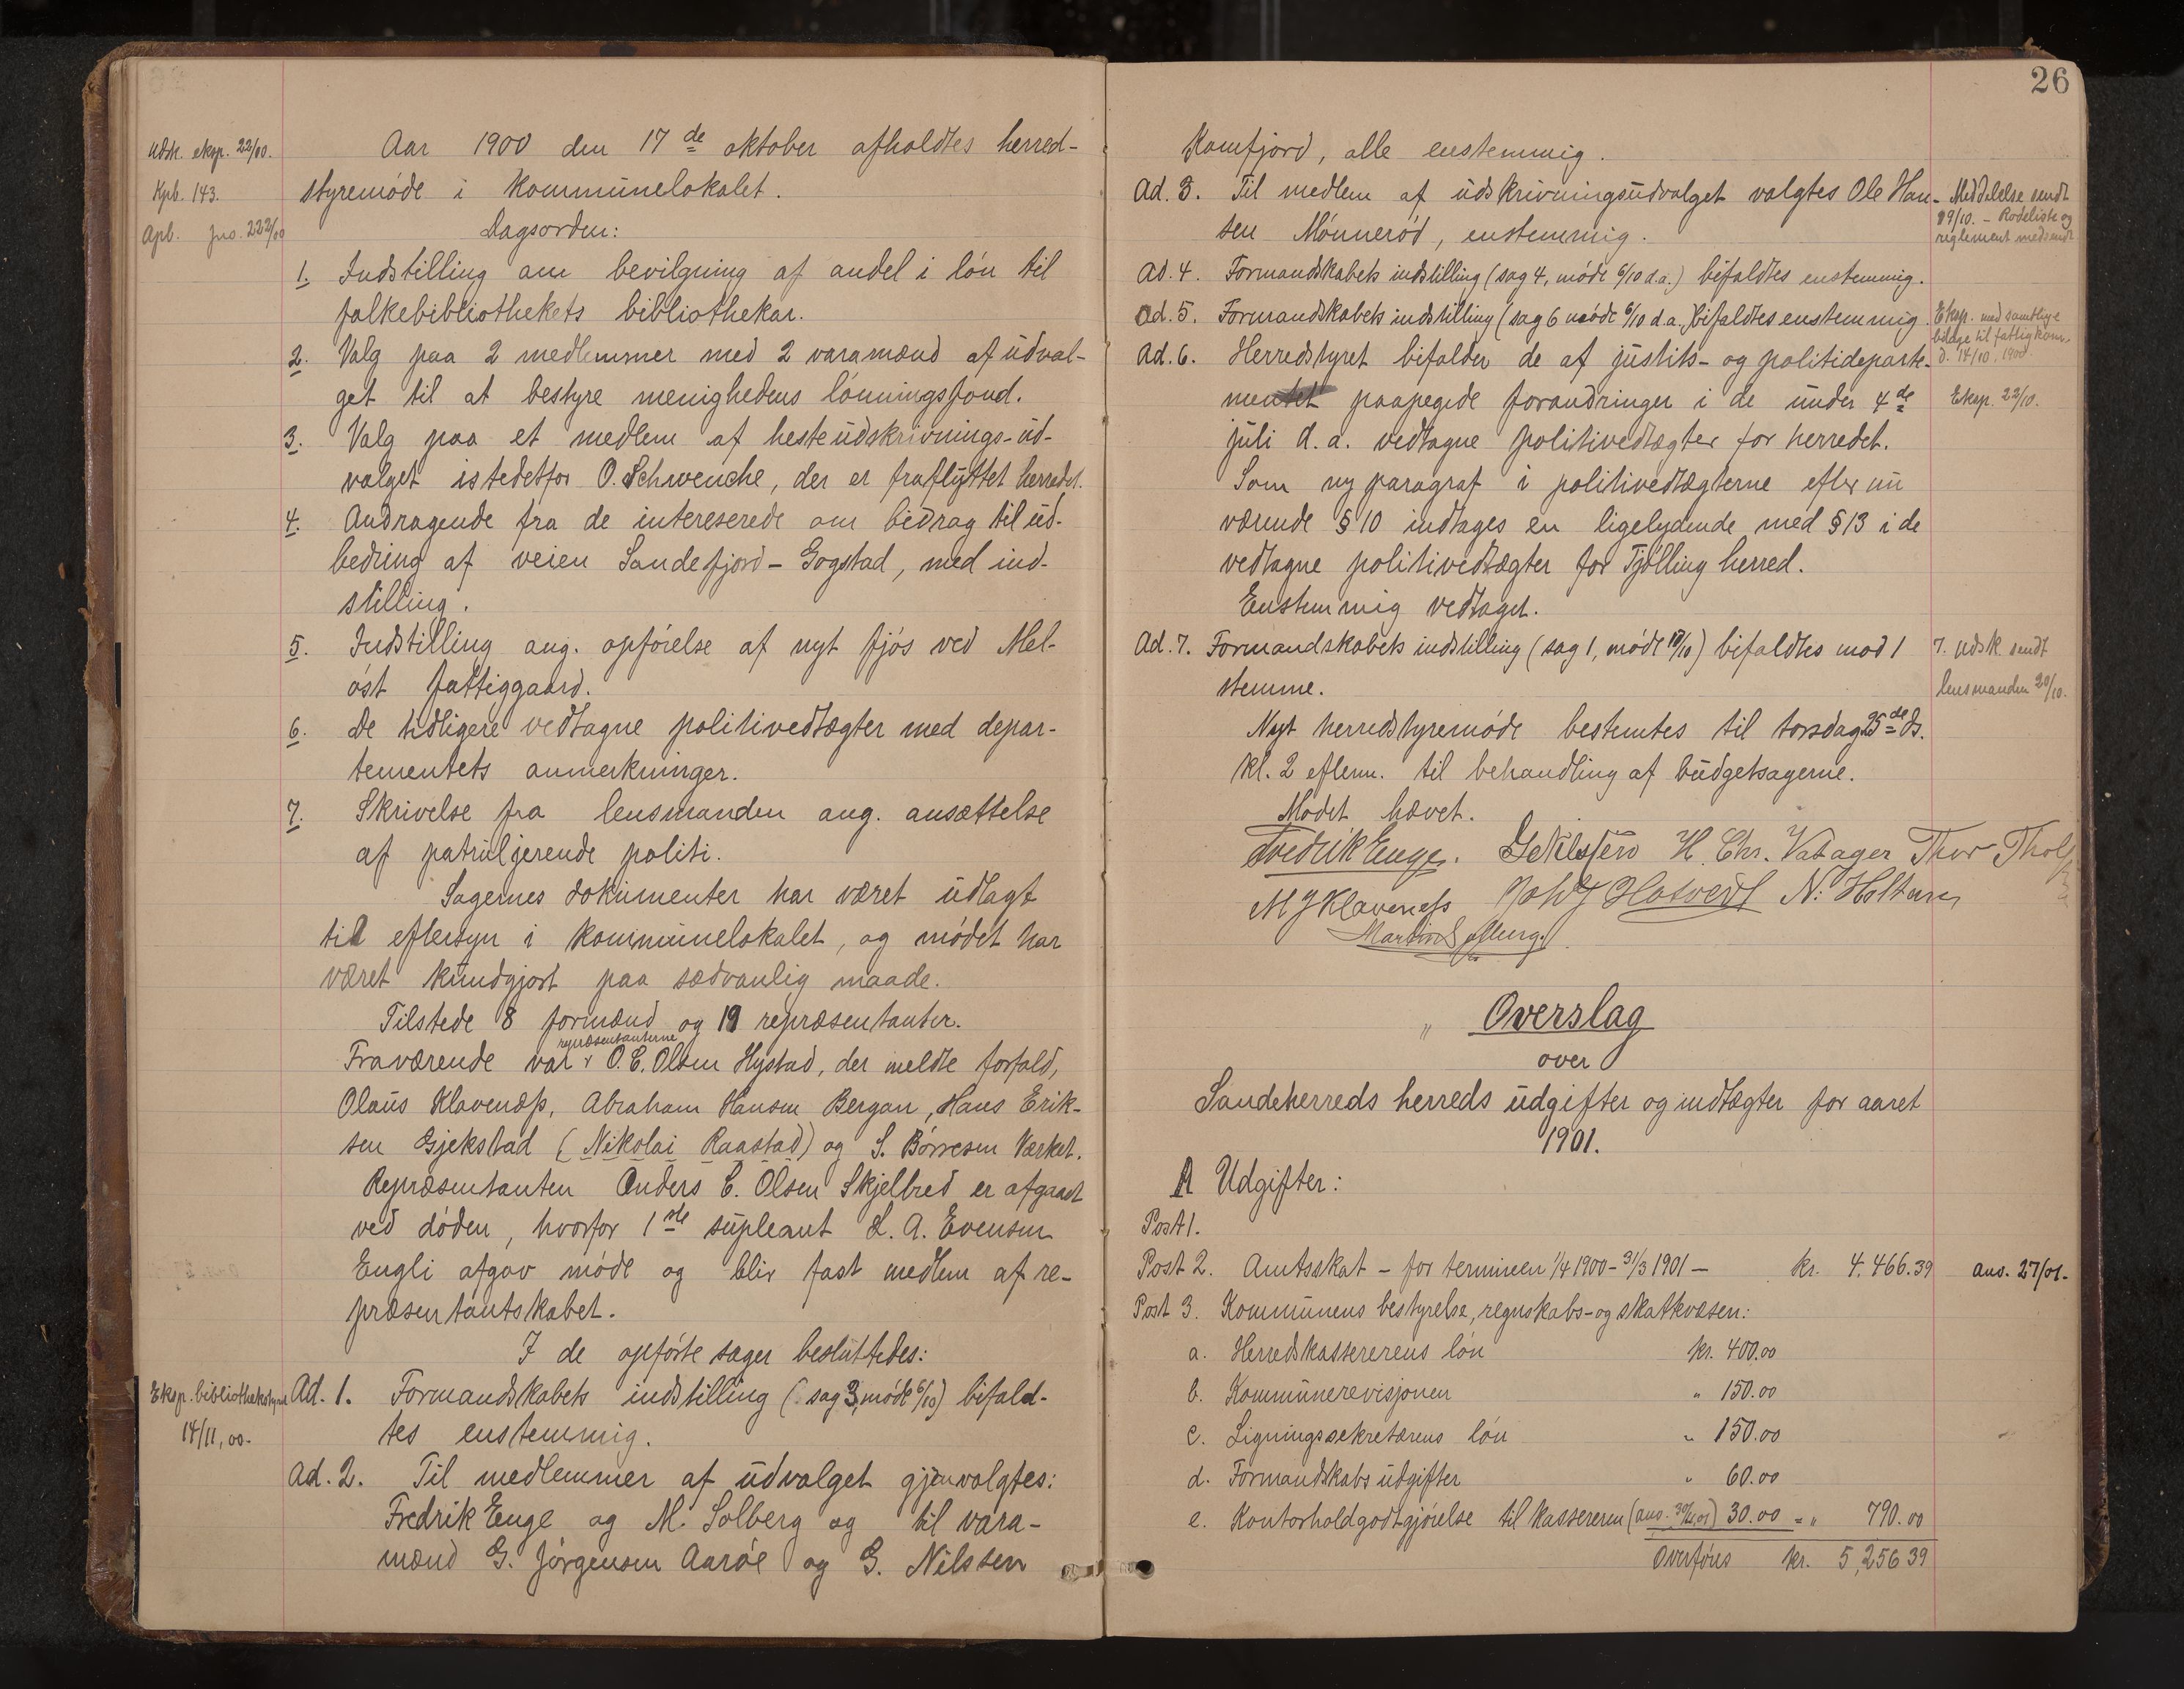 Udsk. eksp. 22/10.
Kpb. 143.
Apb. jno. 222/00
Aar 1900 den 17de oktober afholdtes herred-
styremøde i kommunelokalet.
Dagsorden:
1. Indstilling om bevilgning af andel i løn til
folkebibliothekets bibliothekar.
2. Valg paa 2 medlemmer med 2 varamænd af udval-
get til at bestyre menighedens lønningsfond.
3. Valg paa et medlem af hesteudskrivnings-ud-
valget istedetfor O. Schwencke, der er fraflyttet herredet.
4. Andragende fra de intereserede om bidrag til ud-
bedring af veien Sandefjord - Gogstad, med ind-
stilling.
5. Indstilling ang. opførelse af nyt fjøs ved Mel-
øst fattiggaard.
6. De tidligere vedtagne politivedtægter med depar-
tementets anmerkninger.
7. Skrivelse fra lensmanden ang. ansættelse
af patruljerende politi.
Sagernes dokumenter har været udlagt
til eftersyn i kommunelokalet, og mødet har
været kundgjort paa sædvanlig maade.
Tilstede 8 formænd og 19 repræsentanter.
repræsentanterne
Fraværende var O. E. Olsen Hystad, der meldte forfald,
Olaus Klavenæss, Abraham Hansen Bergan, Hans Erik-
sen Gjekstad (Nikolai Raastad) og S. Børresen Værket.
Repræsentanten Anders C. Olsen Skjelbred er afgaaet
ved døden, hvorfor 1ste supleant L. A. Evensen
Engli afgav møde og blir fast medlem af re-
præsentantskabet.
I de opførte sager besluttedes:
Eksp. bibliothekstyret
14/11, 00.
Ad. 1. Formandskabets indstilling (sag 3, møde 6/10) bifald-
tes enstemmig.
Ad. 2. Til medlemmer af udvalget gjenvalgtes:
Fredrik Enge og M. Solberg og til vara-
mænd G. Jørgensen Aarøe og G. Nilssen
26
Kamfjord, alle enstemmig.
Ad. 3. Til medlem af udskrivningsudvalget valgtes Ole Han-
sen Mønnerød, enstemmig.
Meddelelse sendt
19/10. - Rodeliste og
reglement medsendt
Ad. 4. Formandskabets indstilling (sag 4, møde 6/10 d.a.) bifaldtes enstemmig.
Ad. 5. Formandskabets indstilling (sag 6 møde 6/10 d.a.) bifaldtes enstemmig.
Eksp. med samtlige
bilage til fattigkom.
d. 14/10. 1900.
Ad. 6. Herredstyret bifalder de af justits- og politideparte-
mentet paapegede forandringer i de under 4de
Eksp. 22/10.
juli d.a. vedtagne politivedtægter for herredet.
Som ny paragraf i politivedtægterne efter nu
værende § 10 indtages en ligelydende med § 13 i de
vedtagne politivedtægter for Tjølling herred.
Enstemmig vedtaget.
Ad. 7. Formandskabets indstilling (sag 1, møde 17/10) bifaldtes mod 1
stemme.
7. Udsk. sendt
lensmanden 20/10.
Nyt herredstyremøde bestemtes til torsdag 25de ds.
kl. 2 efterm. til behandling af budgetsagerne.
Mødet hævet.
Fredrik Enge. G Nilssen H. Chr. Vatager Thor
M J Klaveness N. Holtan
Overslag
over
Sandeherreds herreds udgifter og indtægter for aaret
1901.
A Udgifter:
Post 1.
Post 2. Amtsskat - for terminen 1/4 1900 - 31/3 1901 - kr. 4.466.39 anv. 27/01.
Post 3. Kommunens bestyrelse, regnskabs- og skatkvæsen:
a. Herredskassererens løn kr. 400.00
b. Kommunerevisjonen " 150.00
c. Ligningssekretærens løn " 150.00
d. Formandskabs udgifter " 60.00
e. Kontorholdgodtgjørelse til kassereren 30.00 = " 790.00
Overføres kr. 5,256 39